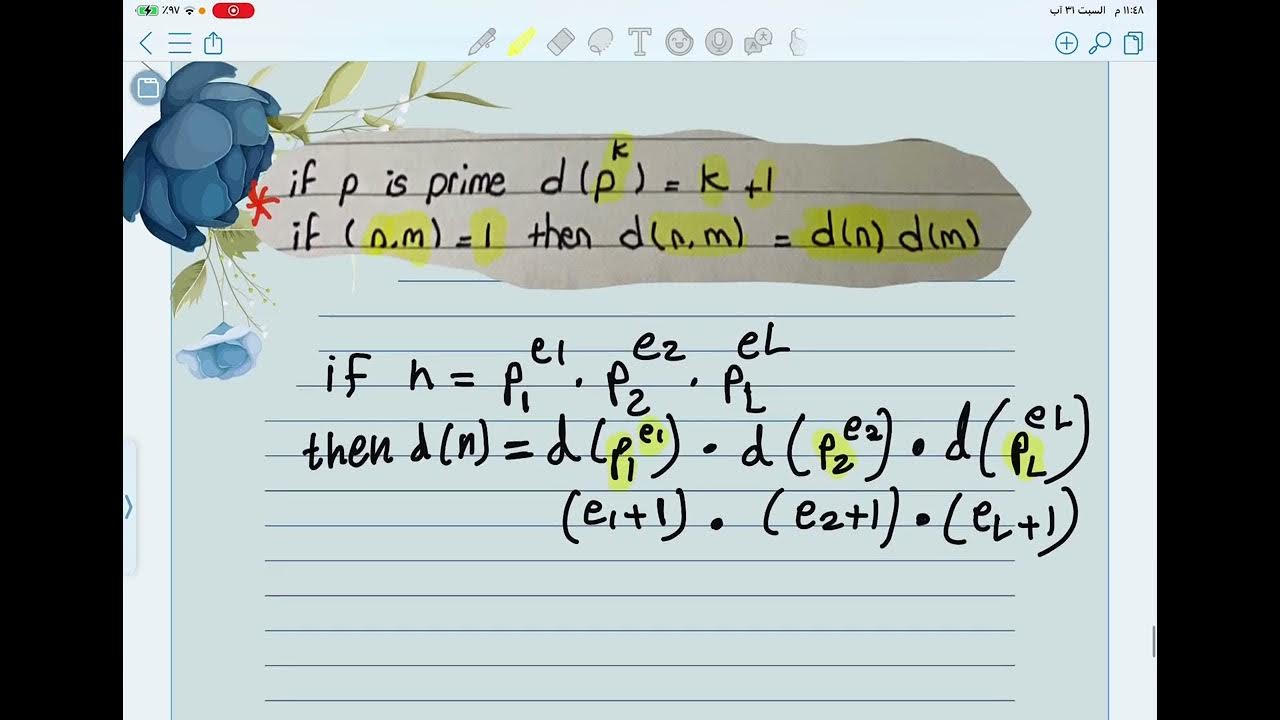 ٪٩٧ ١١:٤٨ م السبت ٣١ آب
if p is prime d(p^k) = k+1
* if (n,m) = 1 then d(n,m) = d(n) d(m)
if n = p₁^e1 · p₂^e2 · p_L^eL
then d(n) = d(p₁^e1) · d(p₂^e2) · d(p_L^eL)
(e1+1) · (e2+1) · (eL+1)